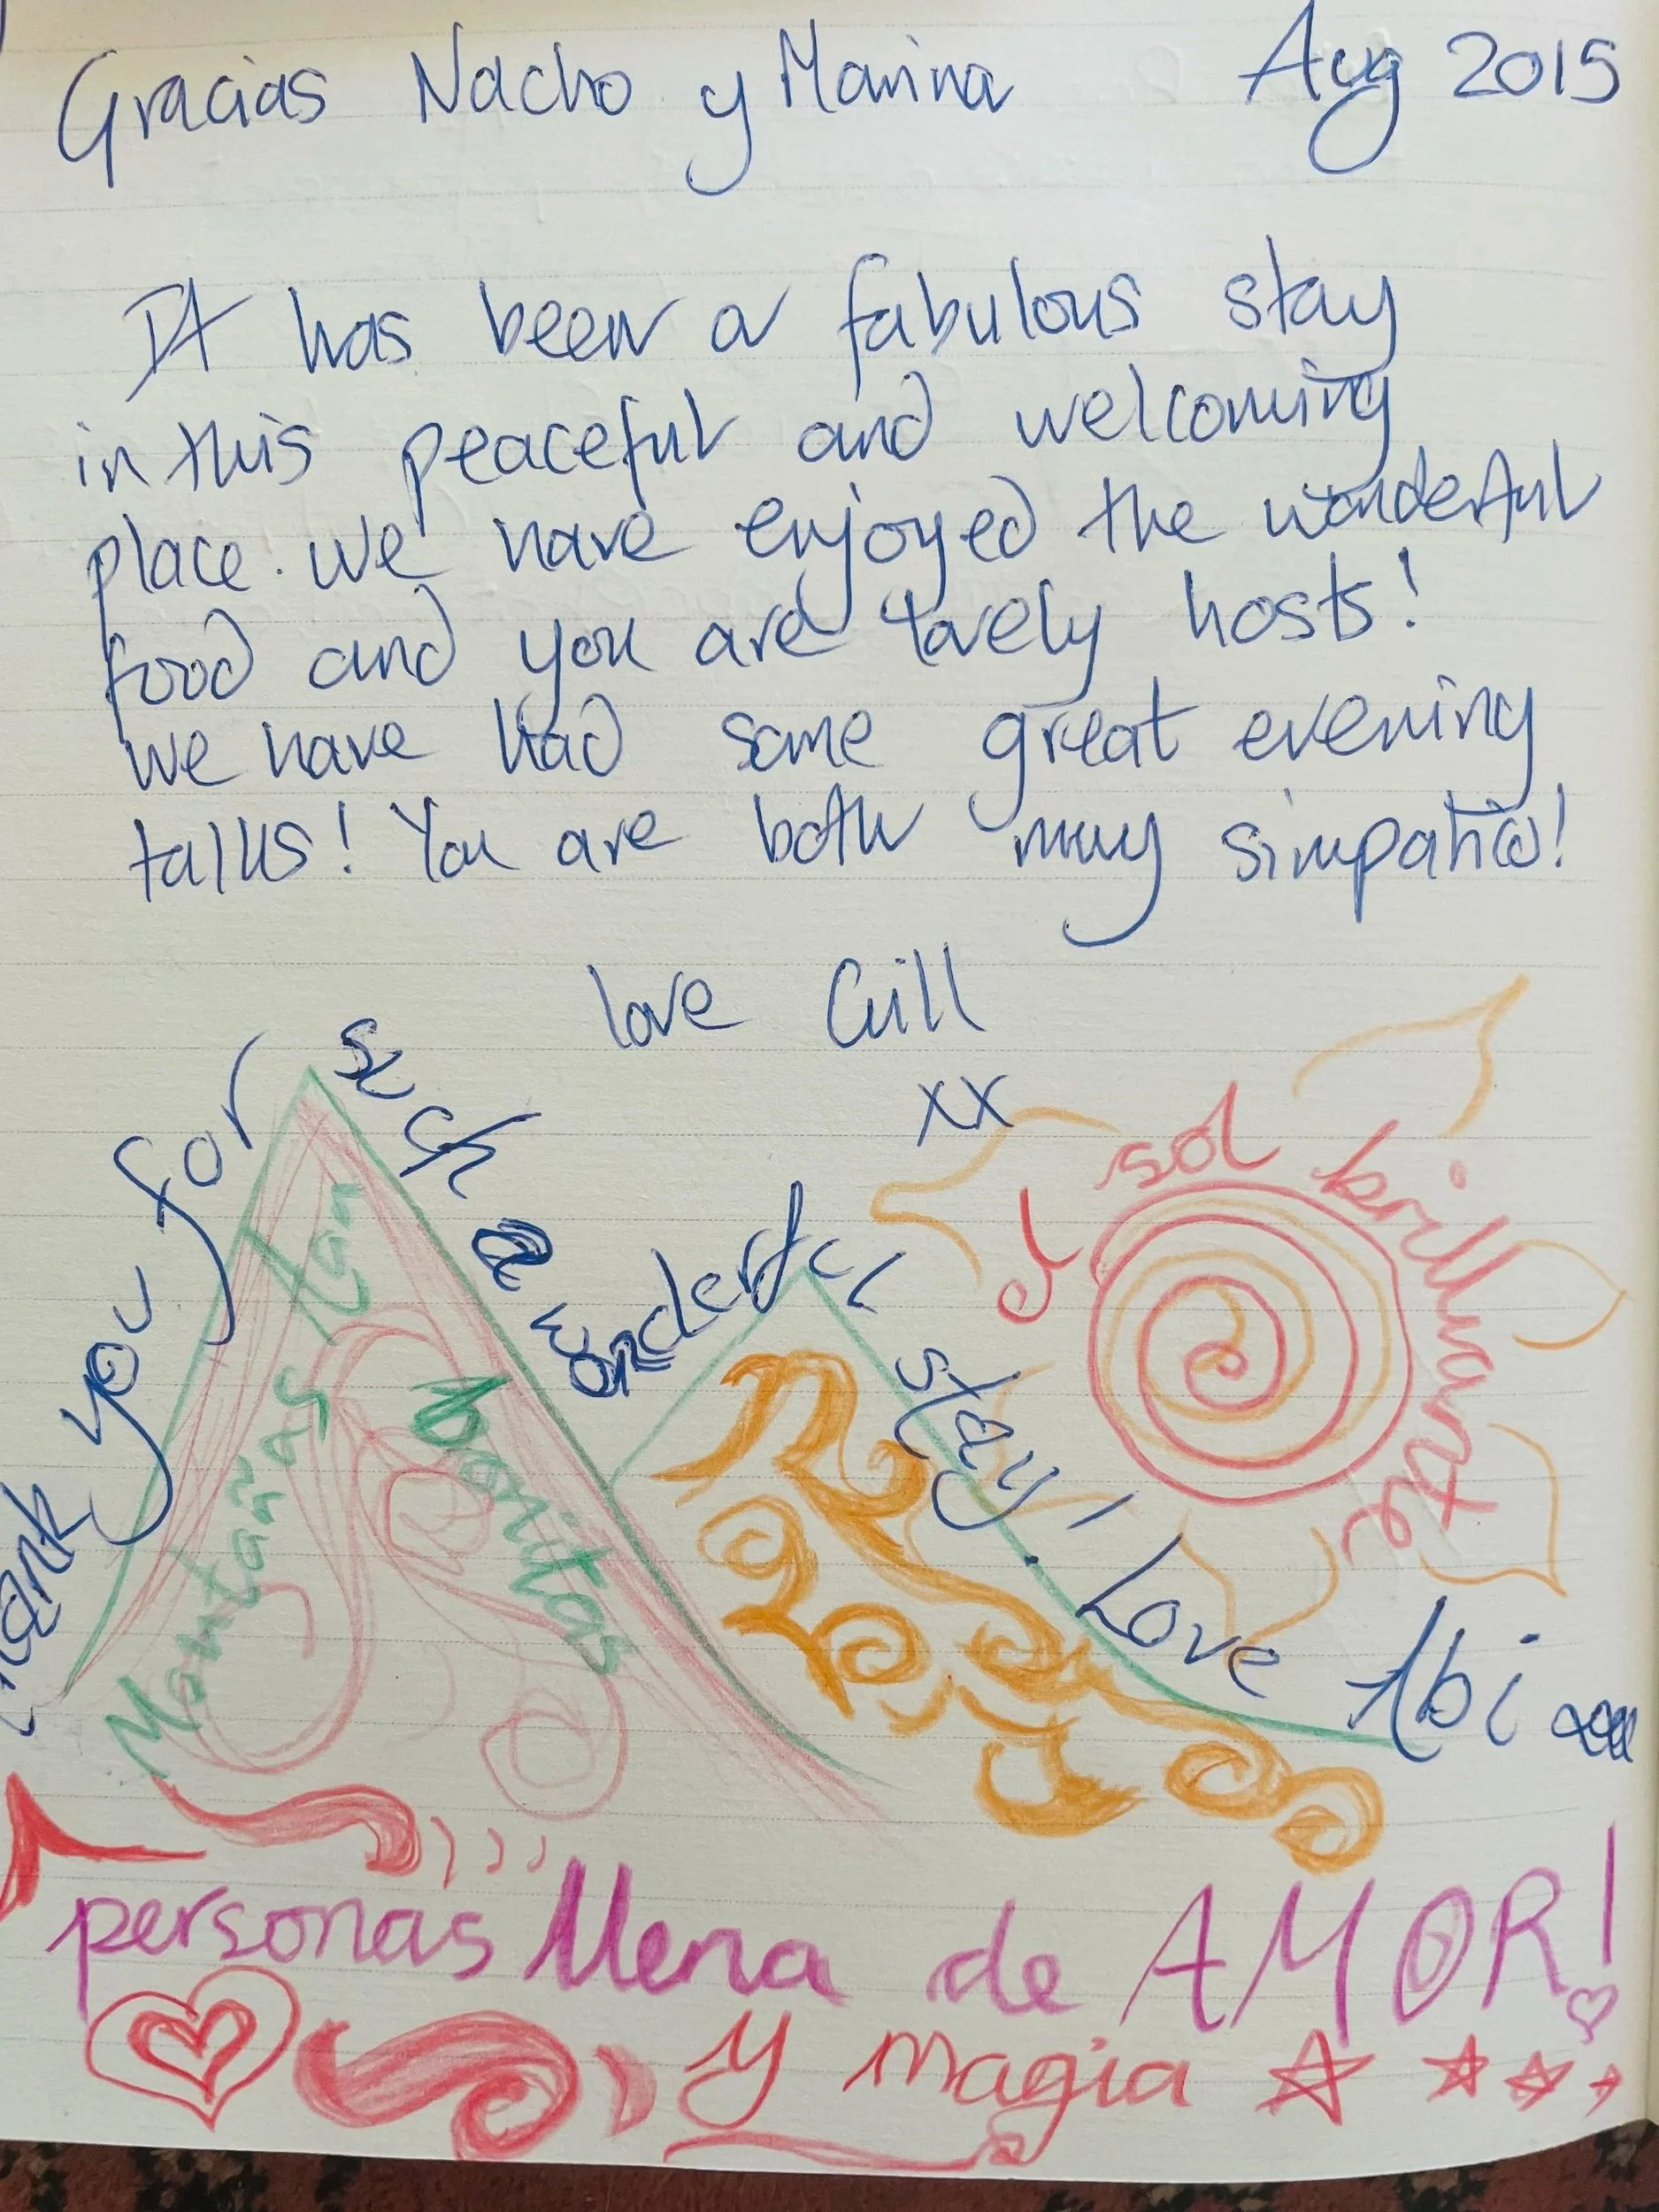 Gracias Nacho y Marina Aug 2015
It has been a fabulous stay
in this peaceful and welcoming
place. we have enjoyed the wonderful
food and you are lovely hosts!
we have had some great evening
talks! You are both muy simpatico!
love Gill
xx
Thank you for such a wonderful stay! Love Abi
el sol brillante
Montañas tan bonitas
personas llena de AMOR!
y magia